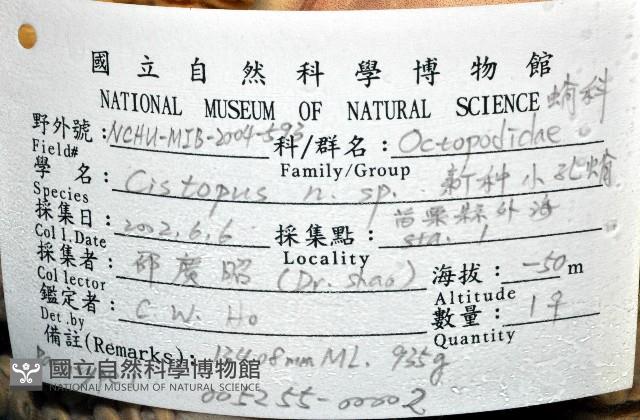 國立自然科學博物館
NATIONAL MUSEUM OF NATURAL SCIENCE 蛸科
野外號: NCHU-MIB-2004-593 科/群名: Octopodidae
Field# Family/Group
學名: Cistopus n. sp. 新种小孔蛸
Species
採集日: 2002.6.6 採集點: 苗栗縣外海 sta. 1
Coll.Date Locality
採集者: 邵廣昭 (Dr. Shao) 海拔: -50 m
Collector Altitude
鑑定者: C.W. Ho 數量: 1♀
Det.by Quantity
備註(Remarks): mm ML. 935g
國立自然科學博物館
NATIONAL MUSEUM OF NATURAL SCIENCE
005255-00002